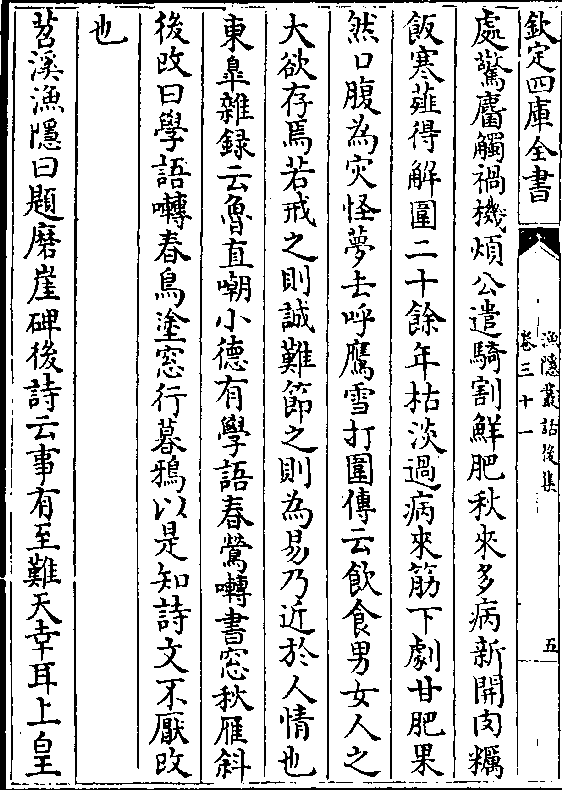 欽定四庫全書
漁隱叢話後集
卷三十一
五
處驚麏觸禍機煩公遣騎割鮮肥秋來多病新開肉糲
飯寒葅得解圍二十餘年枯淡過病來筋下劇甘肥果
然口腹為灾怪夢去呼鷹雪打圍傳云飲食男女人之
大欲存焉若戒之則誠難節之則為易乃近於人情也
東臯雜録云魯直嘲小德有學語春鶯囀書窓秋雁斜
後改曰學語囀春鳥塗窓行暮鴉以是知詩文不厭改
也
苕溪漁隱曰題磨崖碑後詩云事有至難天幸耳上皇